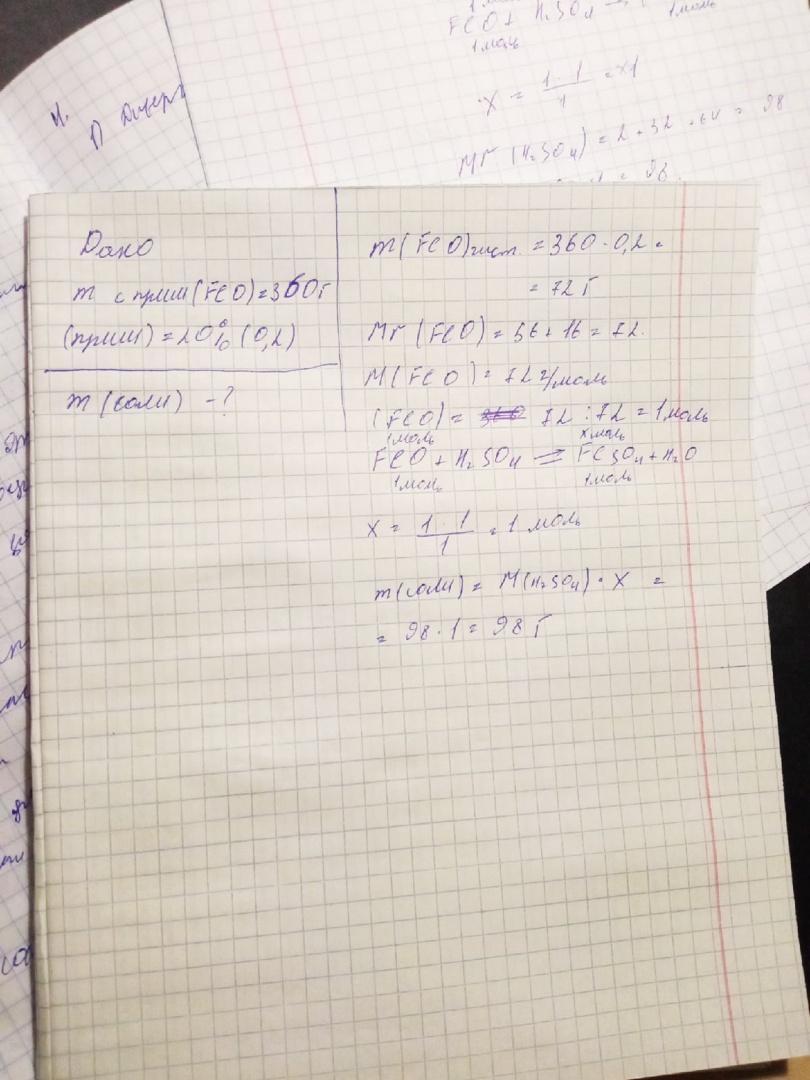 FeO + H₂SO₄
1 моль
1 моль
X = 1 · 1
Mr (H₂SO₄) = 2 + 32 + 64 = 98
Дано
m с прим (FeO) = 360г
(прим) = 20% (0,2)
m (соли) - ?
m (FeO) чист. = 360 · 0,2 =
= 72 г
Mr (FeO) = 56 + 16 = 72.
M (FeO) = 72 г/моль
(FeO) = 72 : 72 = 1 моль
1 моль x моль
FeO + H₂SO₄ = FeSO₄ + H₂O
1 моль 1 моль
X = 1 · 1 / 1 = 1 моль
m (соли) = M (H₂SO₄) · X =
= 98 · 1 = 98 г